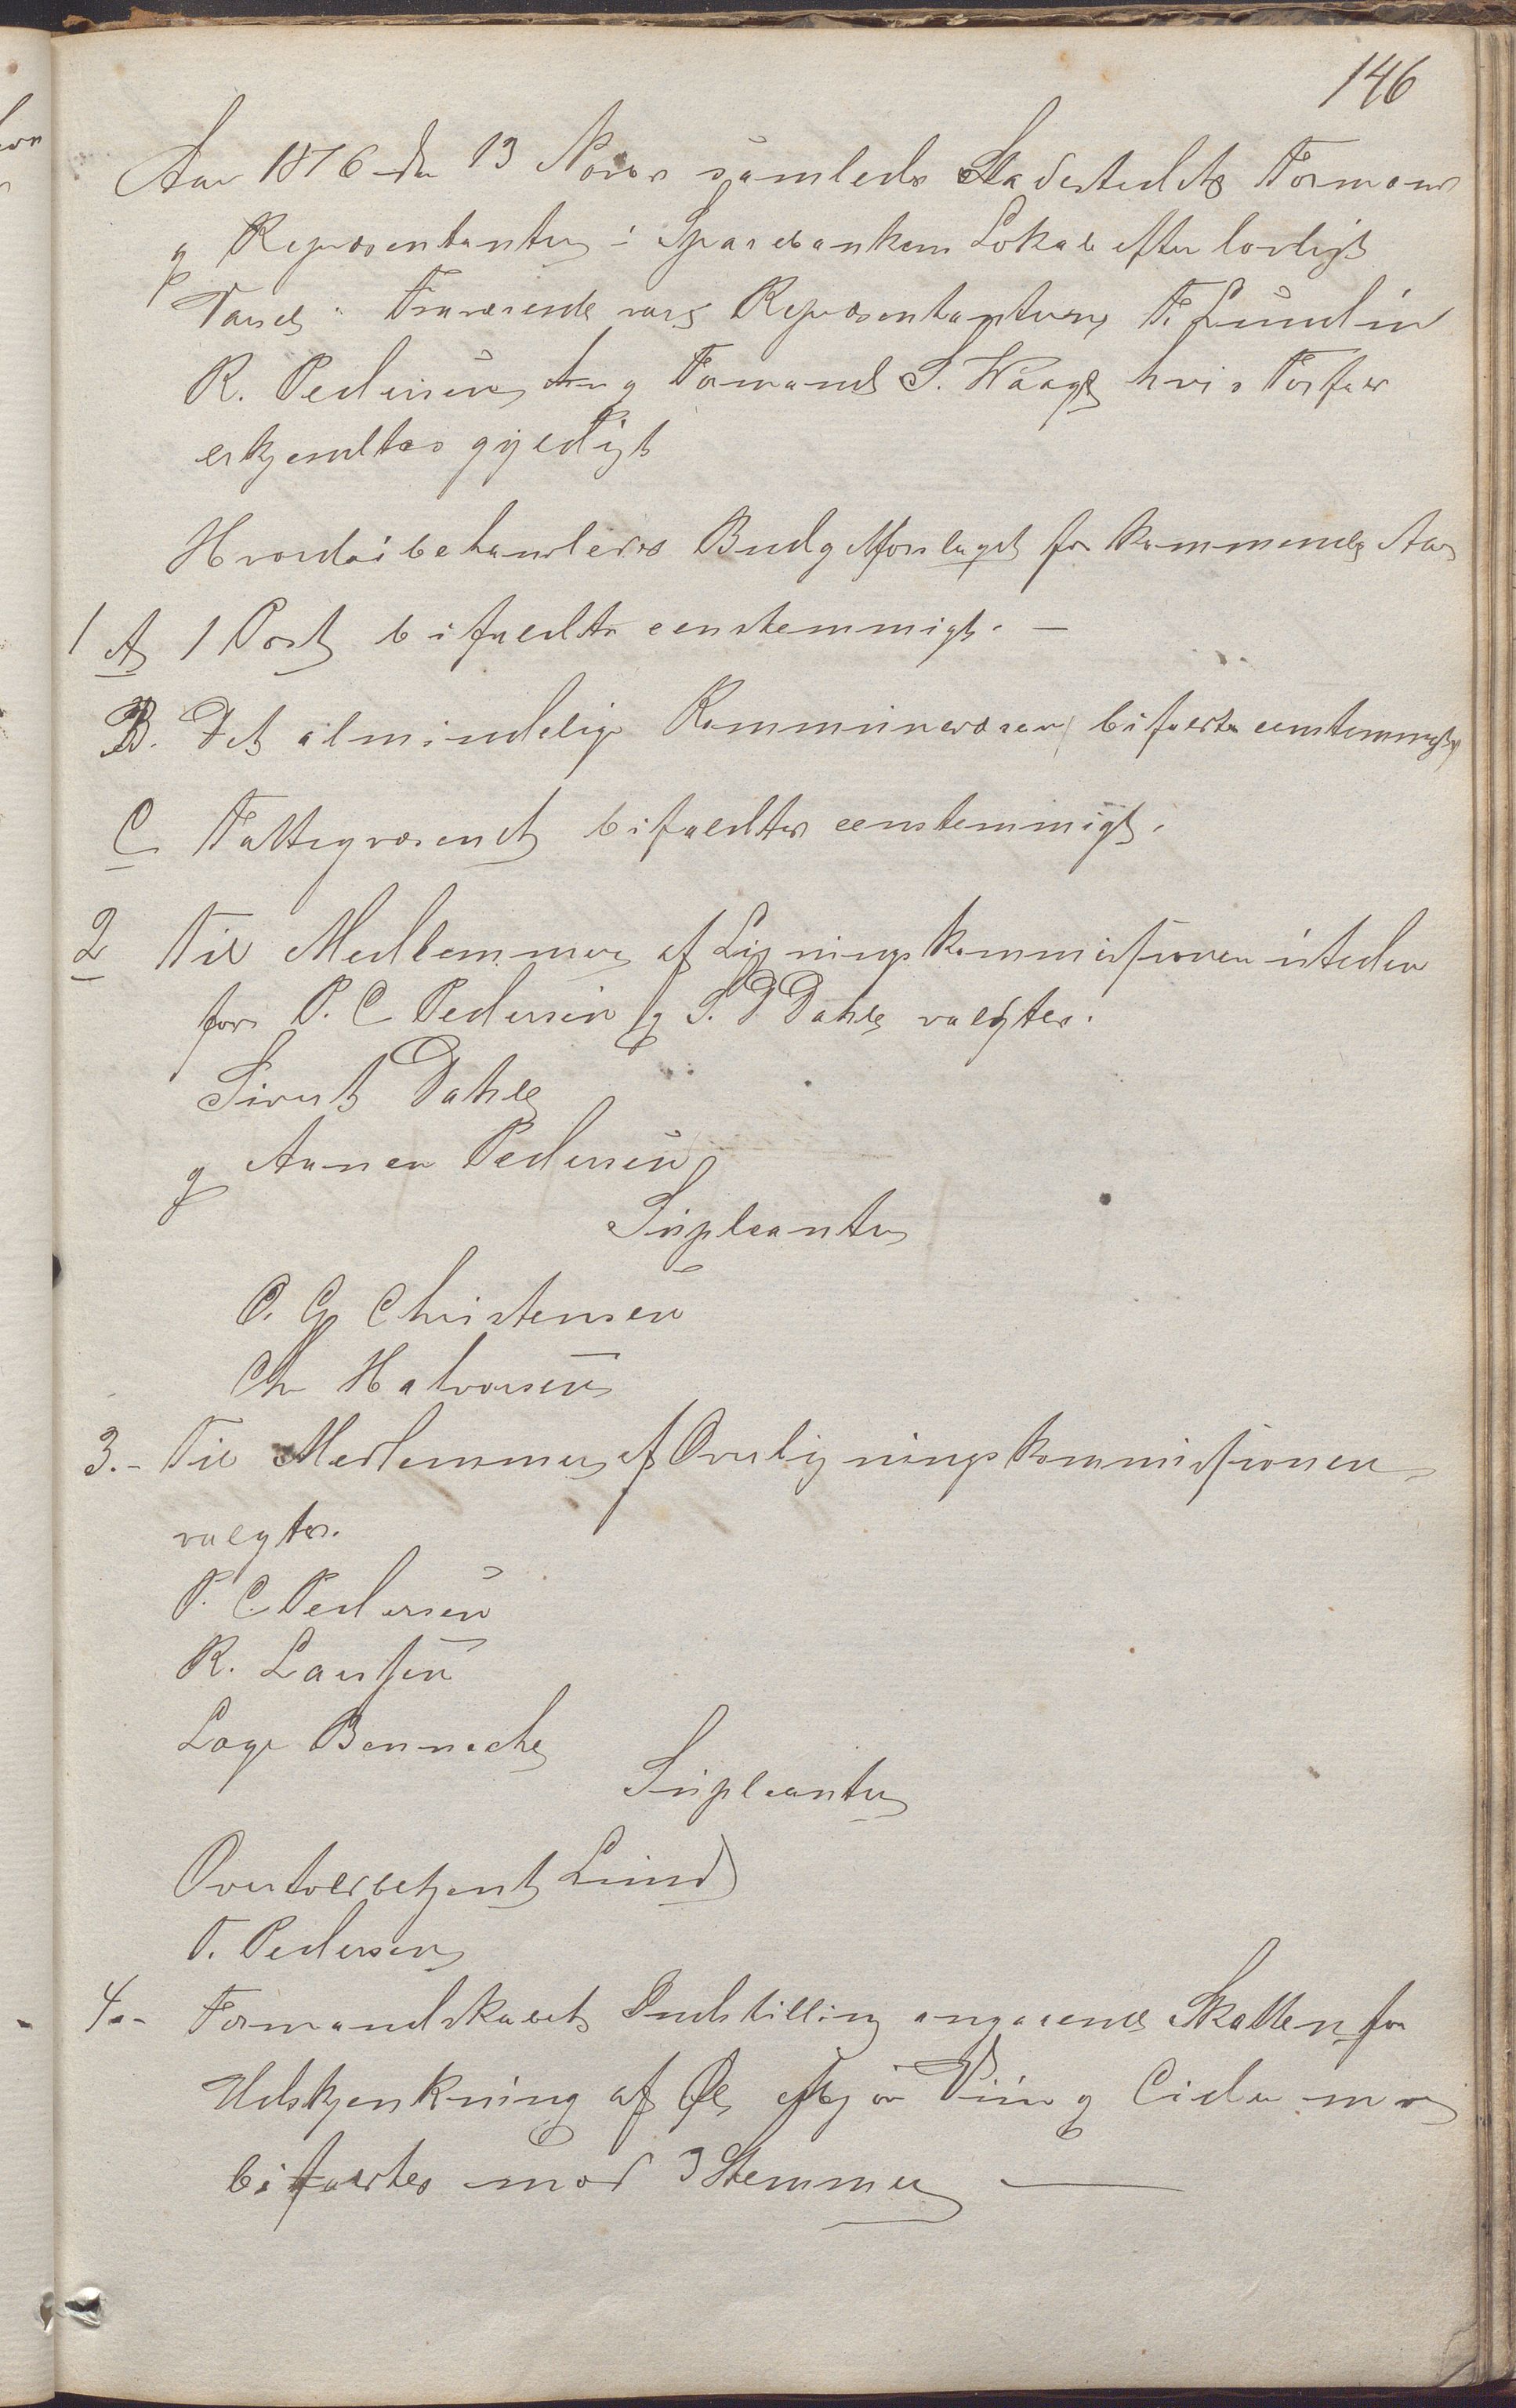 146
Aar 1876 den 13 Novbr samledes Ladestedets Formænd
og Repræsentanter i Sparebankens Lokale efter lovligt
Varsel. Fraværende vare Repræsentanterne F. Lundin
R. Pedersen og Formand S. Waage hvis Forfald
erkjendtes gyldigt
Hvorda behandledes Budgetforslaget for kommende Aar
1 A 1 Post bifaldtes eenstemmigt. —
B. Det almindelige Kommunevæsen bifaldtes eenstemmigt
C Fattigvæsenet bifaldtes eenstemmigt.
2 Til Medlemmer af Ligningskommissionen isteden
for P. C Pedersen og S. D Dahle valgtes.
Sivert Dahle
og Aanen Pedersen
Supleanter
O. G Christensen
Chr Halvorsen
3. - Til Medlemmer af Overligningskommissionen
valgtes.
P. C. Pedersen
R. Laursen
Lage Benneche
Supleanter
Overtoldbetjent Lund
T. Pedersen
4. - Formandskabets Indstilling angaaende Skatten for
Udskjenkning af Øl, Miød Viin og Cider m v
bifaldtes mod 3 Stemmer —